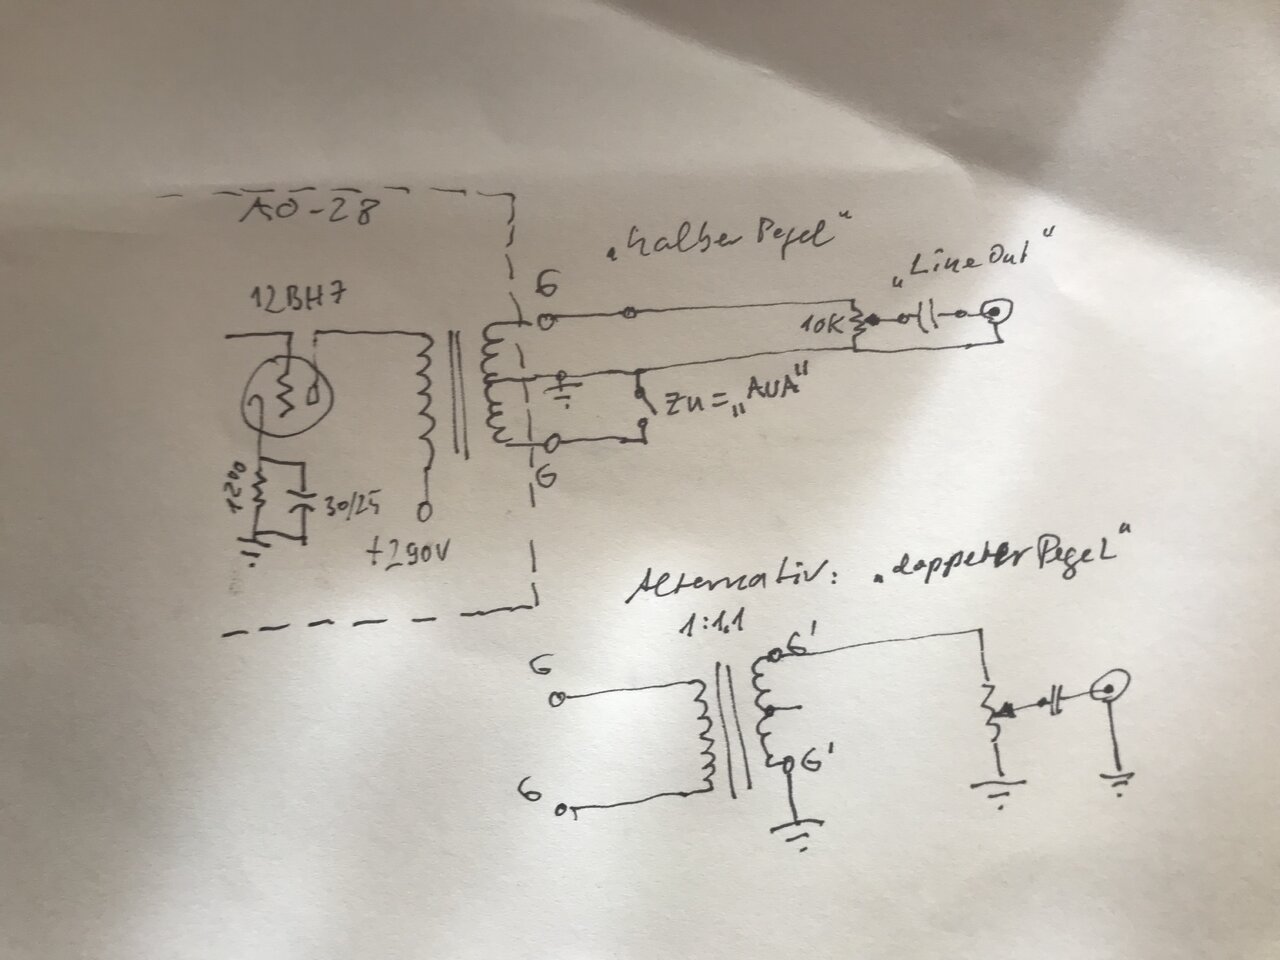 AO-28
„halber Pegel"
„Line Out"
12BH7
G
10K
Zu = „AUA"
G
1200
30/25
+290V
Alternativ: „doppelter Pegel"
1:1,1
G
G'
G
G'